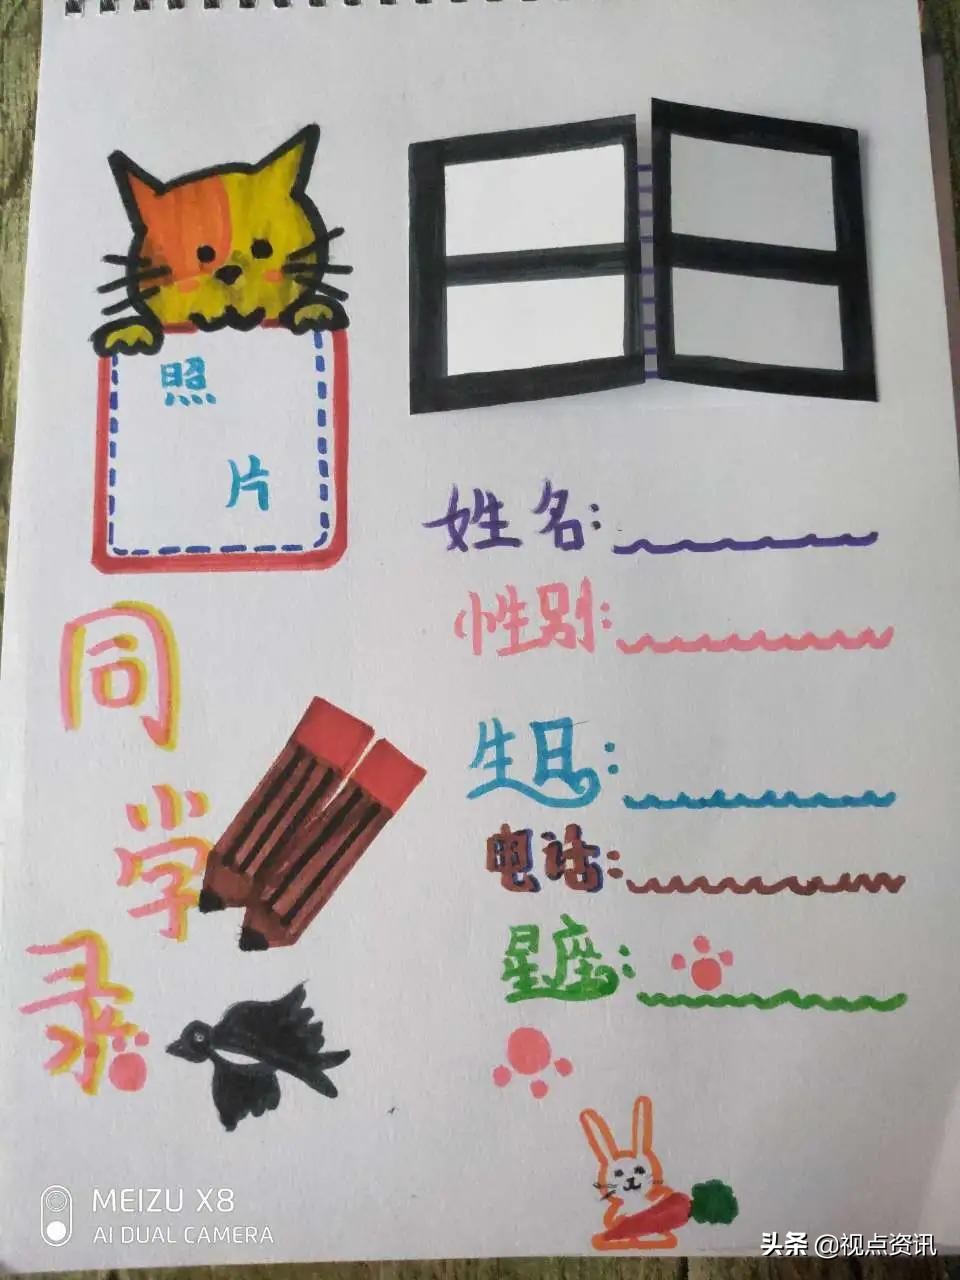 照
片
姓名:
性别:
同
生日:
学
电话:
录
星座:
MEIZU X8
AI DUAL CAMERA
头条 @视点资讯